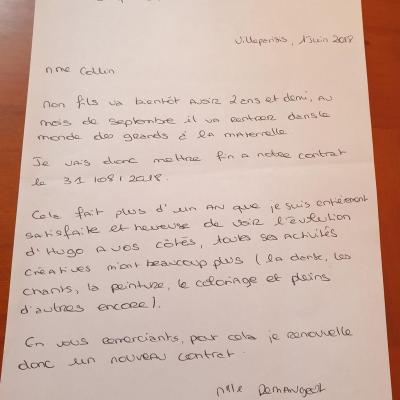 Villeparisis, 1 juin 2018
Mme Collin
Mon fils va bientôt avoir 2 ans et demi, au
mois de septembre il va rentrer dans le
monde des grands à la maternelle.
Je vais donc mettre fin a notre contrat
le 31/08/2018.
Cela fait plus d'un an que je suis entièrement
satisfaite et heureuse de voir l'évolution
d'Hugo a vos côtés, toutes ses activités
créatives m'ont beaucoup plus (la danse, les
chants, la peinture, le coloriage et pleins
d'autres encore).
En vous remerciants, pour cela je renouvelle
donc un nouveau contrat.
Mlle